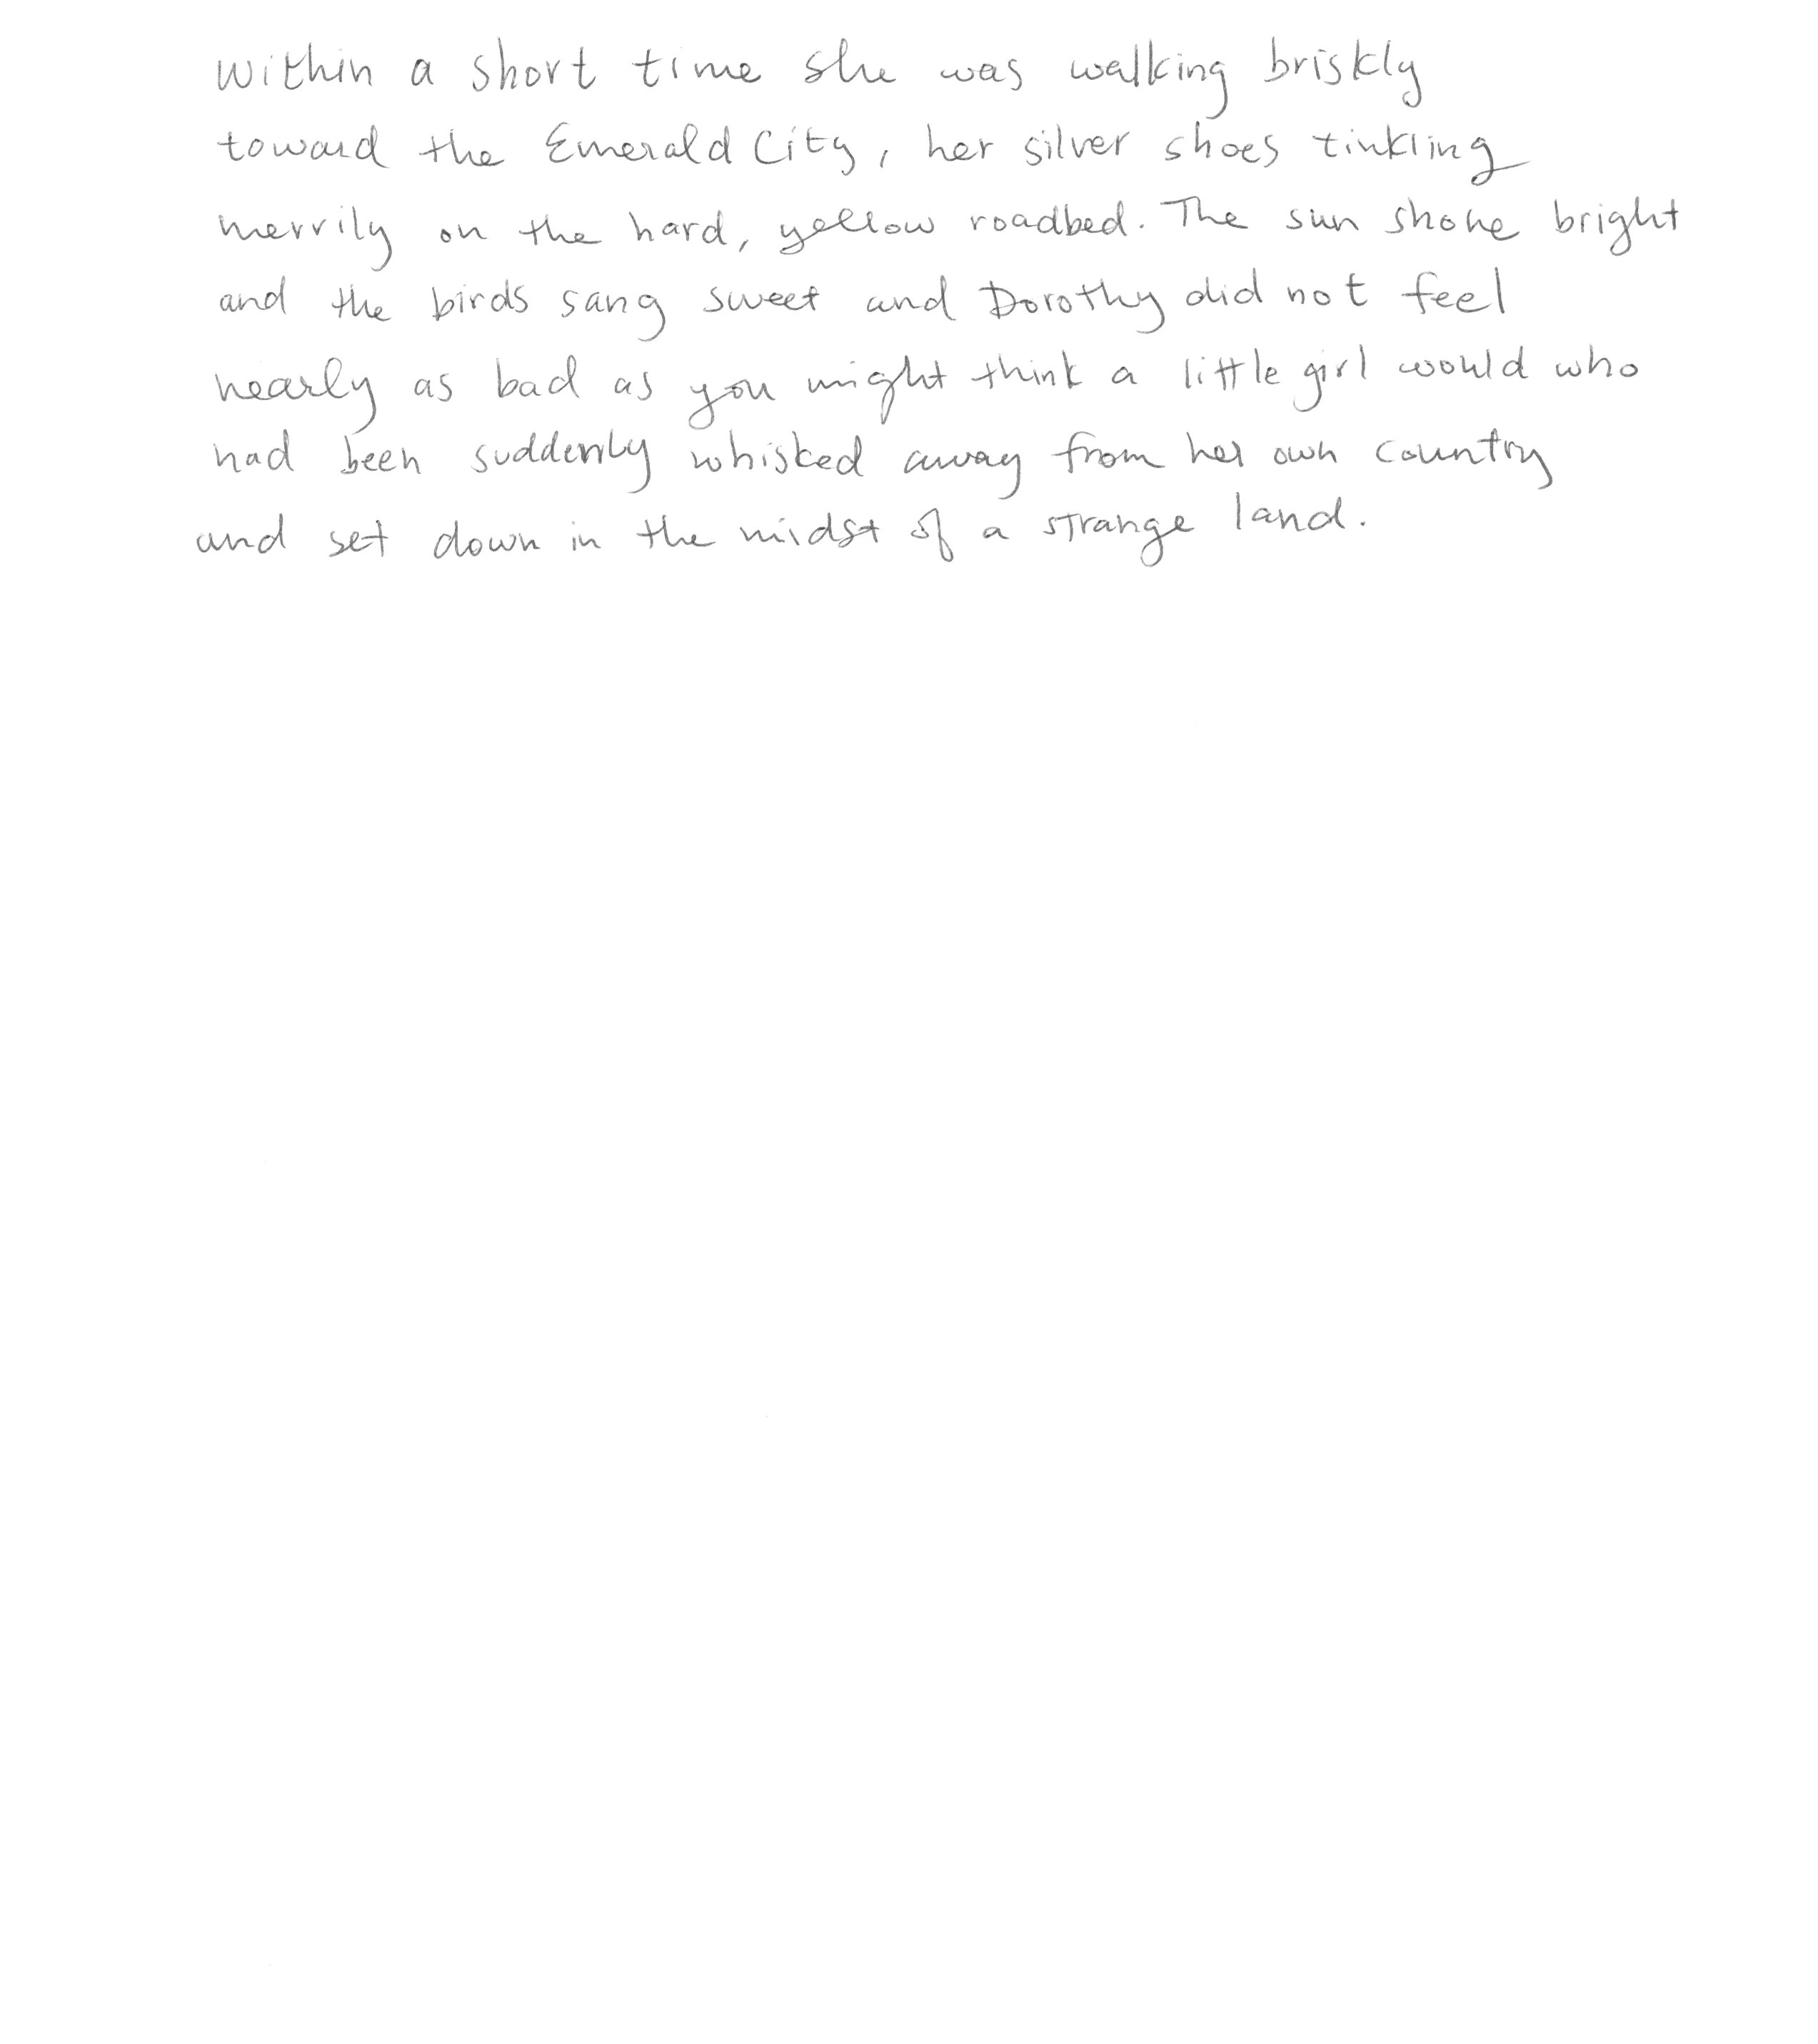 Within a short time she was walking briskly
toward the Emerald City, her silver shoes tinkling
merrily on the hard, yellow roadbed. The sun shone bright
and the birds sang sweet and Dorothy did not feel
nearly as bad as you might think a little girl would who
had been suddenly whisked away from her own country
and set down in the midst of a strange land.